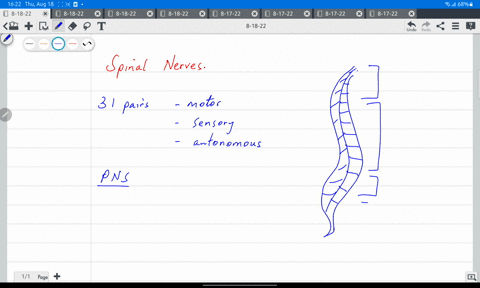 16:22 Thu, Aug 18
68%
8-18-22 8-18-22 8-18-22 8-17-22 8-17-22 8-17-22 8-17-22
8-18-22
Undo Redo
Spinal Nerves.
31 pairs - motor
- sensory
- autonomous
PNS
1/1 Page